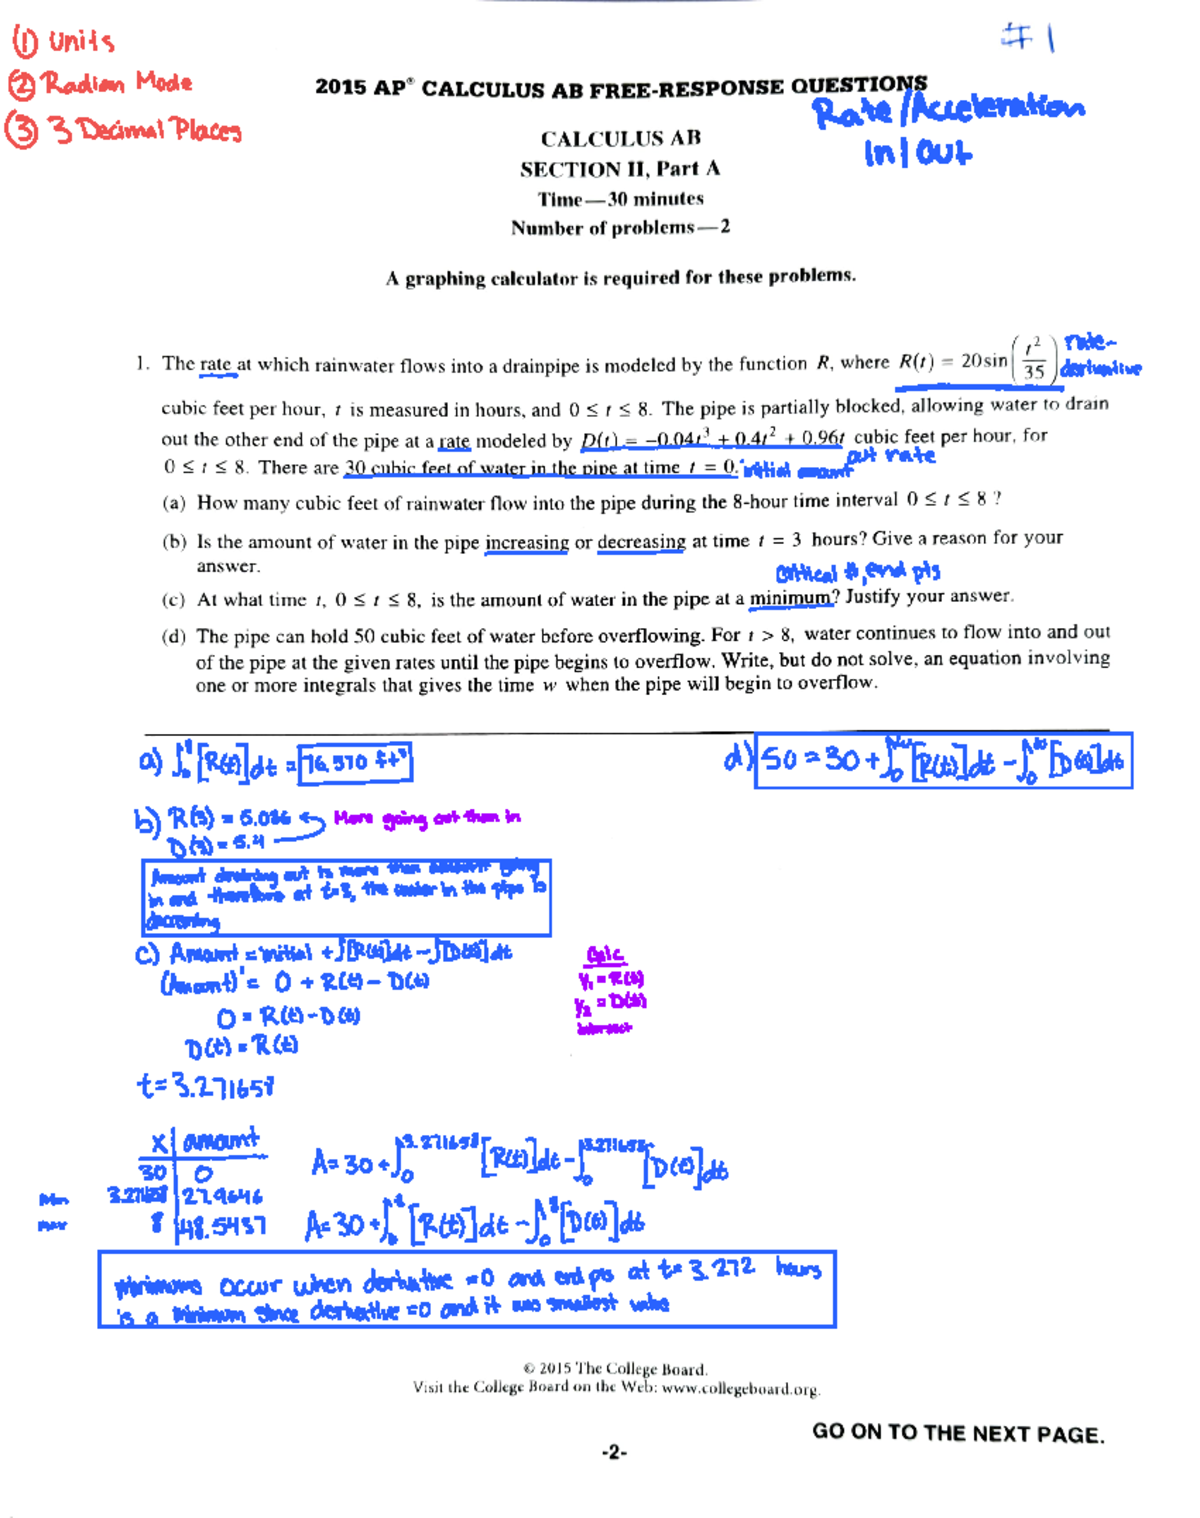 ① Units
# 1
② Radian Mode
2015 AP® CALCULUS AB FREE-RESPONSE QUESTIONS
③ 3 Decimal Places
Rate/Acceleration
In/Out
CALCULUS AB
SECTION II, Part A
Time—30 minutes
Number of problems—2
A graphing calculator is required for these problems.
1. The rate at which rainwater flows into a drainpipe is modeled by the function R, where R(t) = 20sin(t²/35)
rate-
derivative
cubic feet per hour, t is measured in hours, and 0 ≤ t ≤ 8. The pipe is partially blocked, allowing water to drain
out the other end of the pipe at a rate modeled by D(t) = −0.04t³ + 0.4t² + 0.96t cubic feet per hour, for
out rate
0 ≤ t ≤ 8. There are 30 cubic feet of water in the pipe at time t = 0.
initial amount
(a) How many cubic feet of rainwater flow into the pipe during the 8-hour time interval 0 ≤ t ≤ 8 ?
(b) Is the amount of water in the pipe increasing or decreasing at time t = 3 hours? Give a reason for your
answer.
critical #, end pts
(c) At what time t, 0 ≤ t ≤ 8, is the amount of water in the pipe at a minimum? Justify your answer.
(d) The pipe can hold 50 cubic feet of water before overflowing. For t > 8, water continues to flow into and out
of the pipe at the given rates until the pipe begins to overflow. Write, but do not solve, an equation involving
one or more integrals that gives the time w when the pipe will begin to overflow.
a) ∫₀⁸[R(t)]dt = 76.570 ft³
d) 50 = 30 + ∫₀ʷ[R(t)]dt − ∫₀ʷ[D(t)]dt
b) R(3) = 5.086
More going out than in
D(3) = 5.4
Amount draining out is more than amount going
in and therefore at t=3, the water in the pipe is
decreasing
c) Amount = initial + ∫[R(t)]dt − ∫[D(t)]dt
(Amount)' = 0 + R(t) − D(t)
0 = R(t) − D(t)
D(t) = R(t)
t = 3.271658
Calc
y₁ = R(t)
y₂ = D(t)
intersect
x amount
30 0
Min 3.271658 27.9646
Max 8 48.5437
A = 30 + ∫₀^3.271658 [R(t)]dt − ∫₀^3.271658 [D(t)]dt
A = 30 + ∫₀⁸ [R(t)]dt − ∫₀⁸ [D(t)]dt
minimums occur when derivative =0 and end pts at t= 3.272 hours
is a minimum since derivative =0 and it was smallest value
© 2015 The College Board.
Visit the College Board on the Web: www.collegeboard.org.
GO ON TO THE NEXT PAGE.
-2-